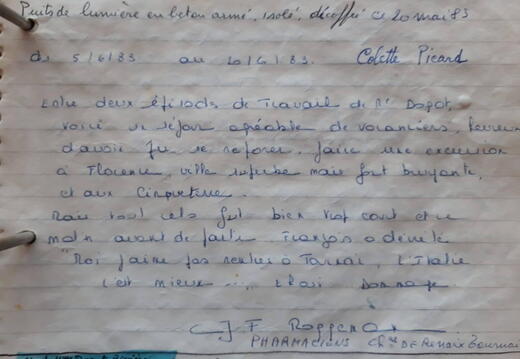 Puits de lumière en béton armé, isolé, décoffré ce 20 mai 83
du 5/6/83 au 20/6/83. Colette Picard
Entre deux épisodes de Travail de Mr
voici un séjour agréable de vacanciers, heureux
d'avoir pu se reposer, faire une excursion
à Florence, ville superbe mais fort bruyante,
et aux Cinqueterre.
Mais tout cela fut bien trop court et ce
matin avant de partir François a déclaré
"Moi j'aime pas rentrer à Tournai, l'Italie
c'est mieux ....
F.
PHARMACIENS Chée DE Renaix Tournai